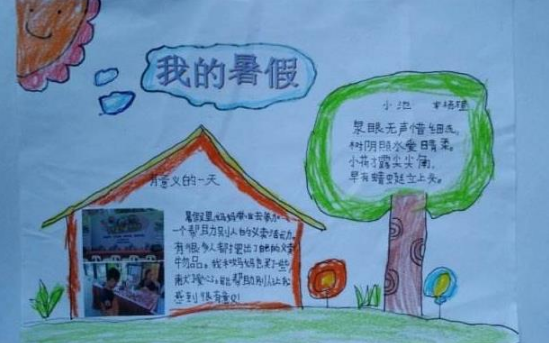 我的暑假
小池
泉眼无声惜细流,
树阴照水爱晴柔。
小荷才露尖尖角,
早有蜻蜓立上头。
有意义的一天
暑假里,妈妈带我去参加
一个帮助别人的义卖活动,
有很多人都拿出了自己的义卖
物品。我和妈妈也
能帮助别人让我
感到很有意义!